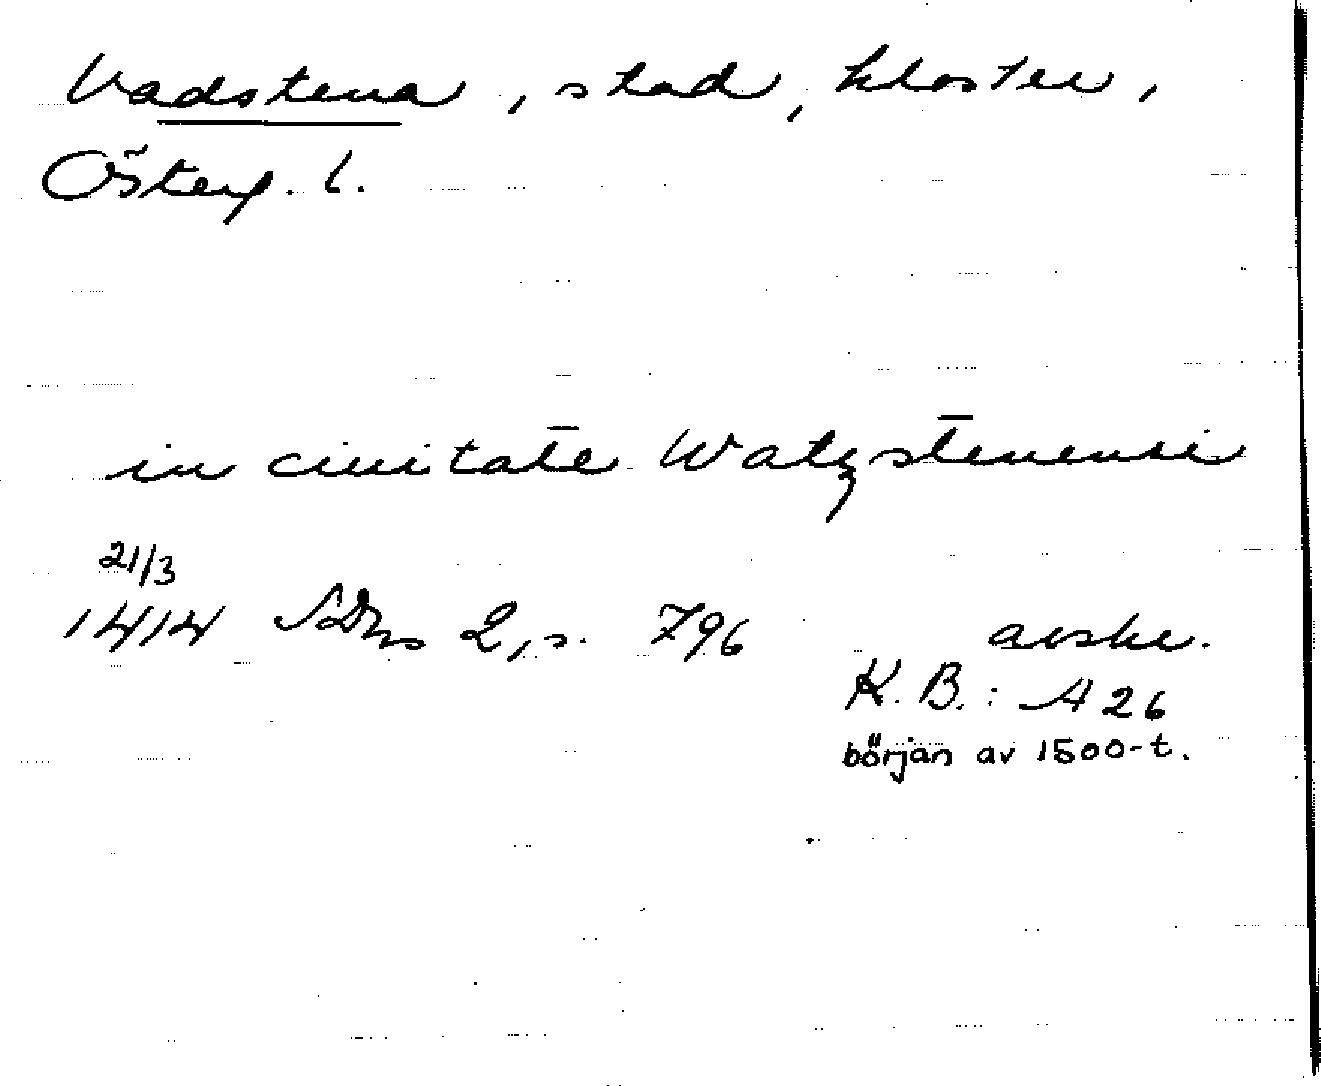 Vadstena, stad, kloster,
Österg. l.
in ciuitate Watzstenensi
21/3
1414 SDns 2, s. 796 avskr.
K. B. : A 26
början av 1500-t.